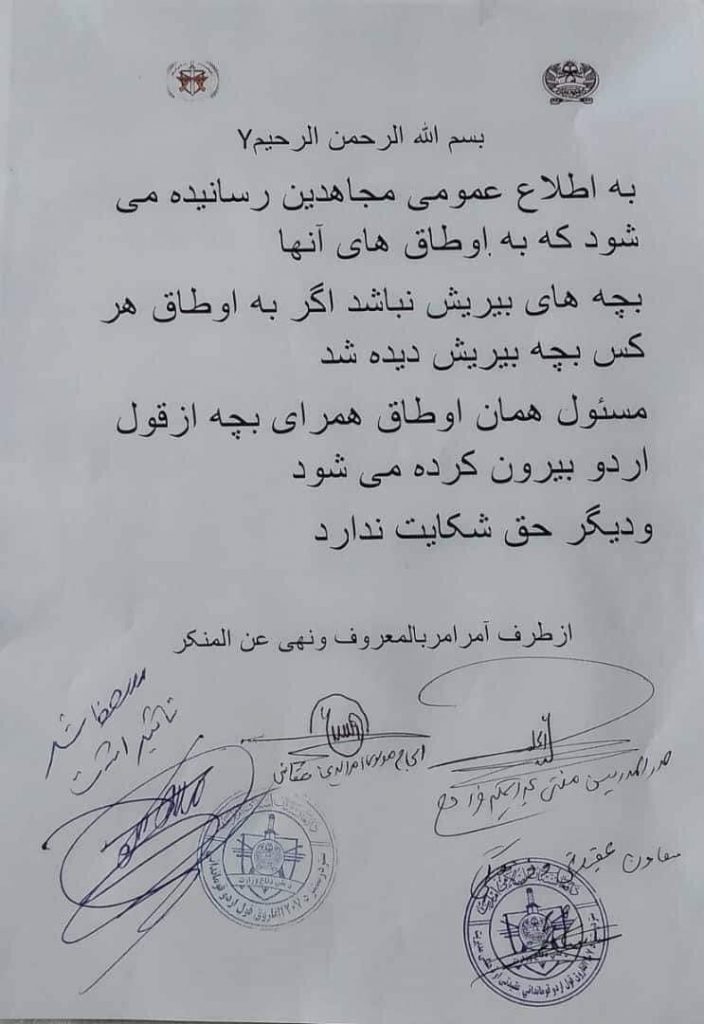 بسم الله الرحمن الرحیم۷
به اطلاع عمومی مجاهدین رسانیده می
شود که به اوطاق های آنها
بچه های بیریش نباشد اگر به اوطاق هر
کس بچه بیریش دیده شد
مسئول همان اوطاق همرای بچه ازقول
اردو بیرون کرده می شود
ودیگر حق شکایت ندارد
ازطرف آمرامربالمعروف ونهی عن المنکر
ملاحظه شد
معاون عقیدتی